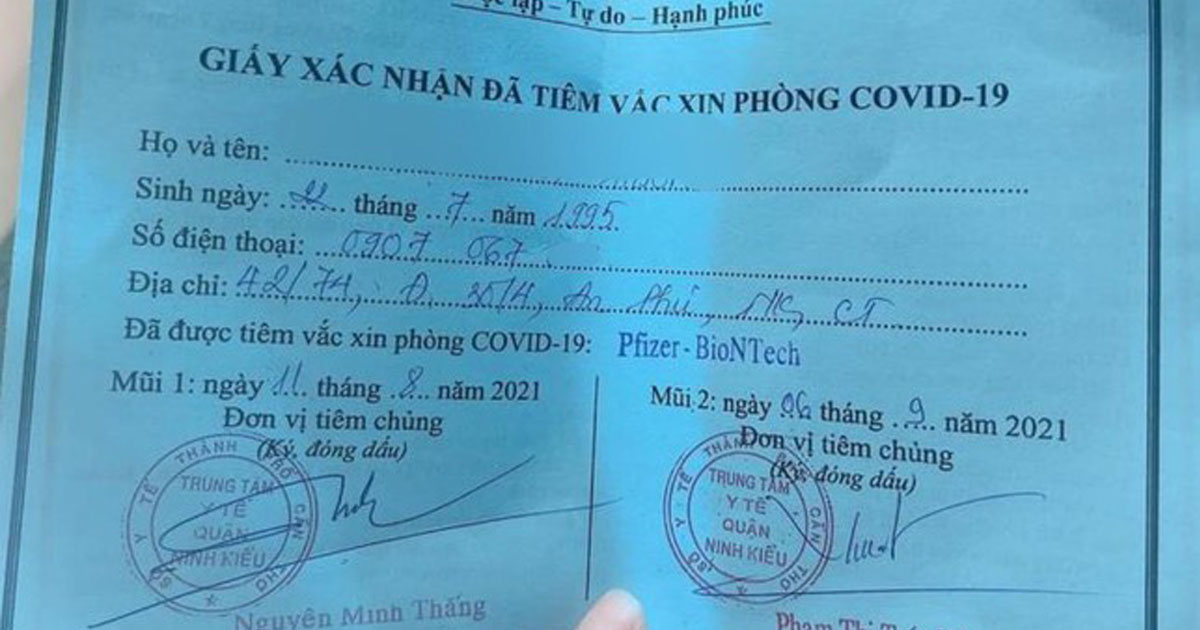 lập – Tự do – Hạnh phúc
GIẤY XÁC NHẬN ĐÃ TIÊM VẮC XIN PHÒNG COVID-19
Họ và tên:
Sinh ngày: 22 tháng 7 năm 1995.
Số điện thoại: 0907 067
Địa chỉ: 42/74, Đ. 30/4, An Phú, NK, CT
Đã được tiêm vắc xin phòng COVID-19: Pfizer - BioNTech
Mũi 1: ngày 11 tháng 8 năm 2021
Đơn vị tiêm chủng
(Ký, đóng dấu)
SỞ Y TẾ THÀNH PHỐ CẦN THƠ
TRUNG TÂM
Y TẾ
QUẬN
NINH KIỀU
Nguyễn Minh Thắng
Mũi 2: ngày 06 tháng 9 năm 2021
Đơn vị tiêm chủng
(Ký, đóng dấu)
SỞ Y TẾ THÀNH PHỐ CẦN THƠ
TRUNG TÂM
Y TẾ
QUẬN
NINH KIỀU
Phạm Thị